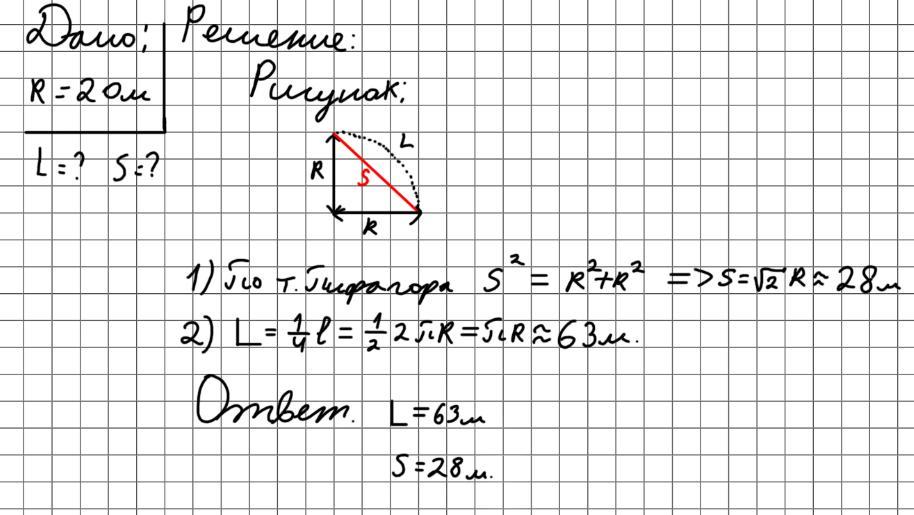 Дано: Решение:
R = 20м Рисунок:
L = ? S = ?
L
R
S
R
1) По т. Пифагора S² = R² + R² => S = √2 R ≈ 28м
2) L = 1/4 l = 1/2 2πR = πR ≈ 63м.
Ответ. L = 63м
S = 28м.